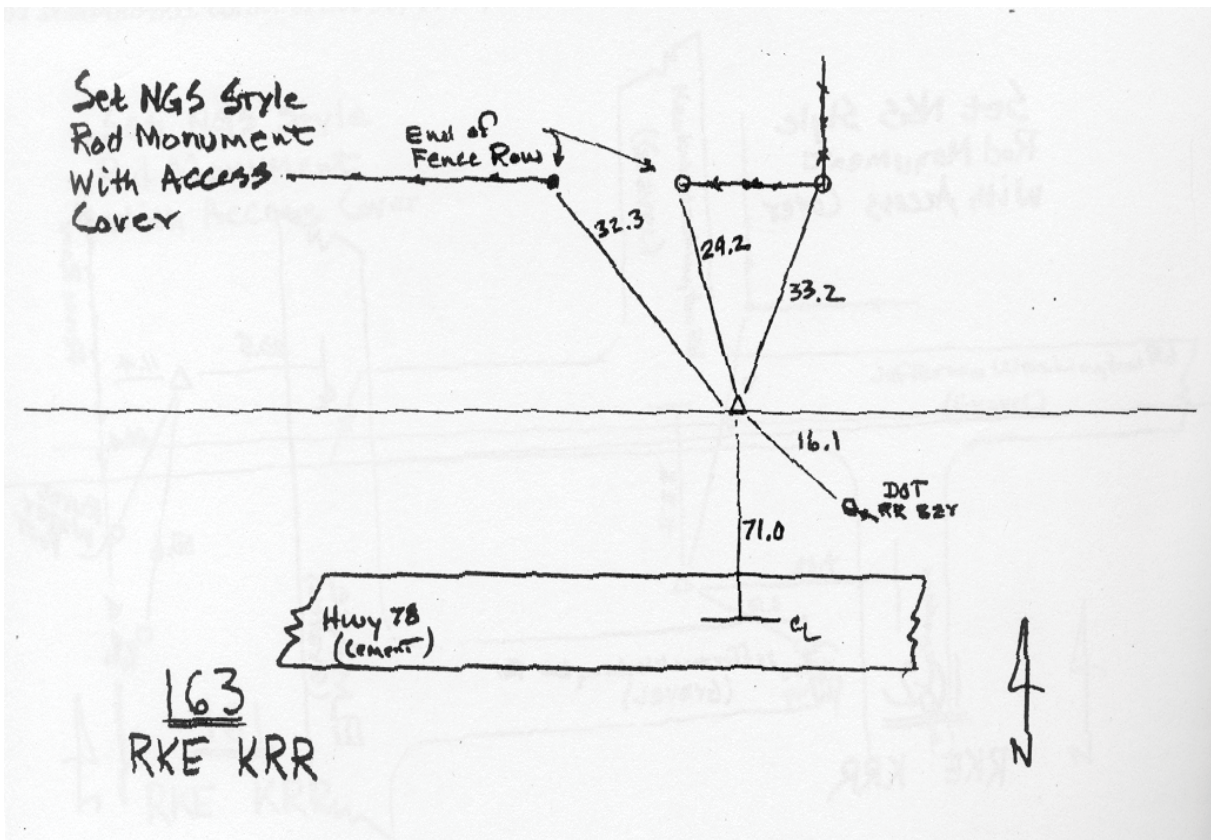 Set NGS Style
Rod Monument
With Access
Cover
End of
Fence Row
32.3
29.2
33.2
16.1
DOT
71.0
Hwy 78
(Cement)
CL
163
RKE KRR
N